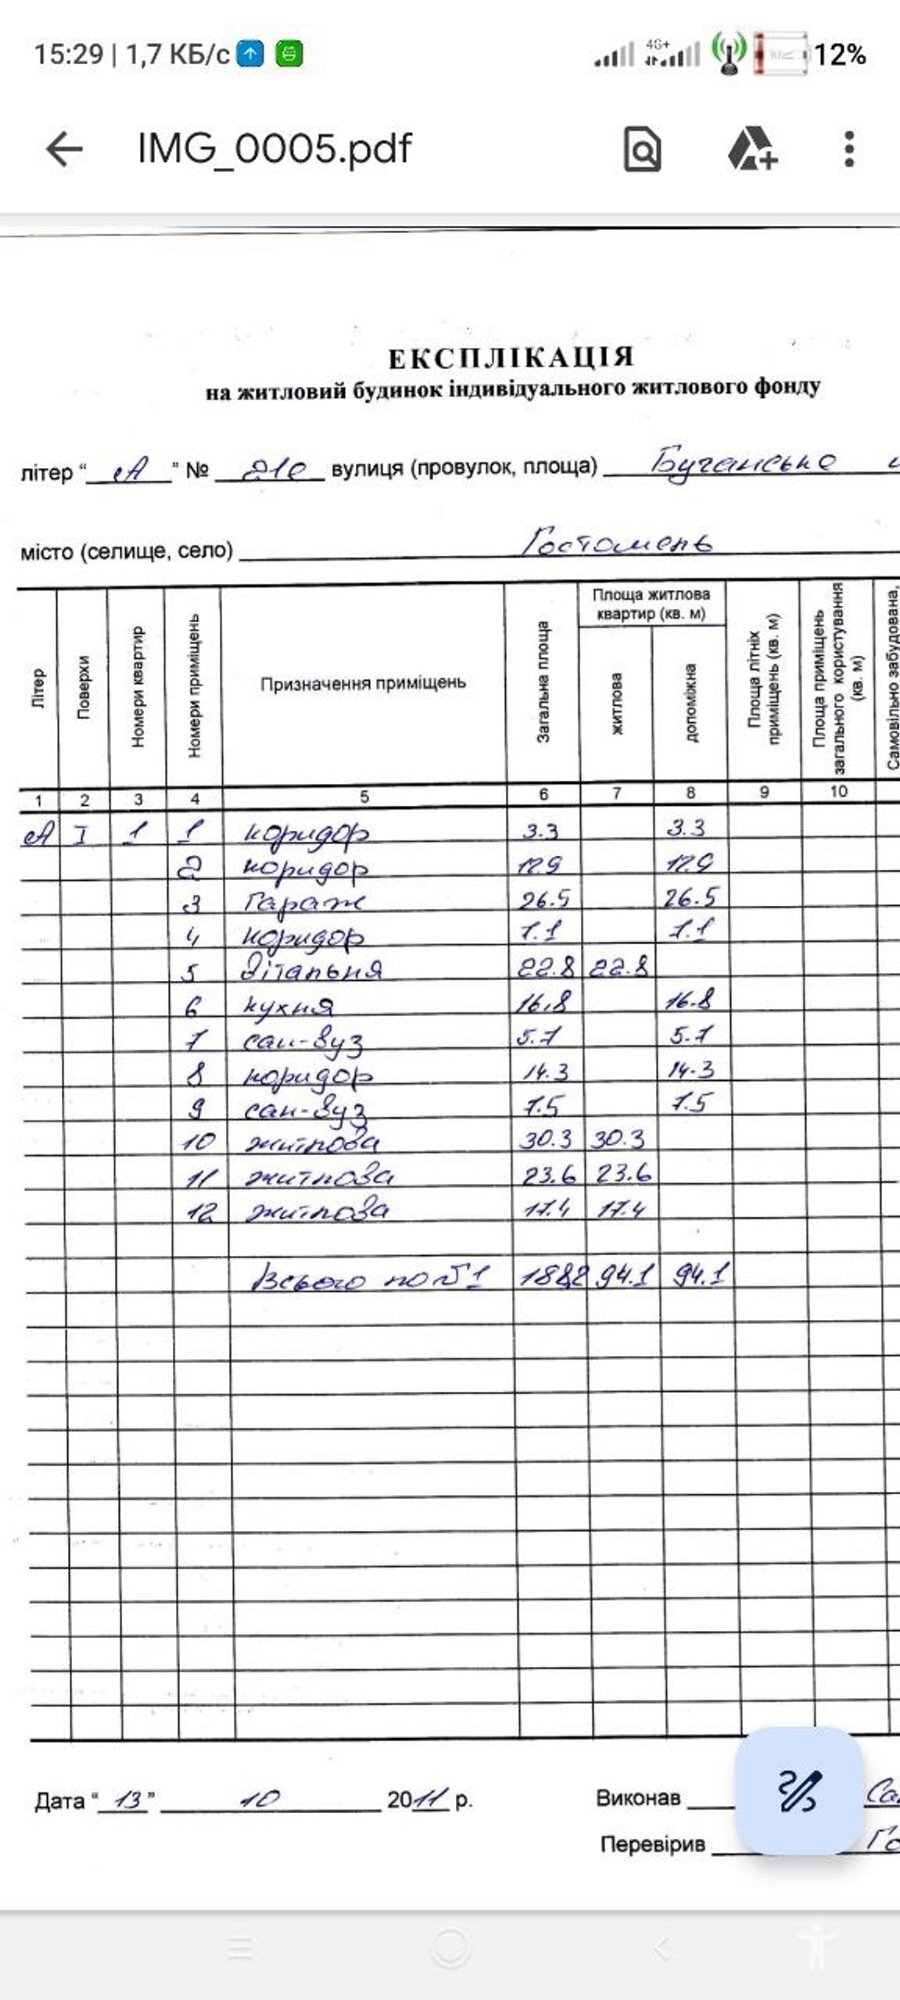 15:29 | 1,7 КБ/с 4G+ 12%
IMG_0005.pdf
ЕКСПЛІКАЦІЯ
на житловий будинок індивідуального житлового фонду
літер “ А ” № 21е вулиця (провулок, площа) Бучанське
місто (селище, село) Гостомель
Літер Поверхи Номери квартир Номери приміщень Призначення приміщень Загальна площа Площа житлова квартир (кв. м) житлова допоміжна Площа літніх приміщень (кв. м) Площа приміщень загального користування (кв. м) Самовільно забудована,
1 2 3 4 5 6 7 8 9 10
А I 1 1 коридор 3.3 3.3
2 коридор 12.9 12.9
3 гараж 26.5 26.5
4 коридор 7.1 7.1
5 вітальня 22.8 22.8
6 кухня 16.8 16.8
7 сан-вуз 5.7 5.7
8 коридор 14.3 14.3
9 сан-вуз 7.5 7.5
10 житлова 30.3 30.3
11 житлова 23.6 23.6
12 житлова 17.4 17.4
Всього по №1 188.2 94.1 94.1
Дата “ 13 ” 10 2011 р. Виконав
Перевірив